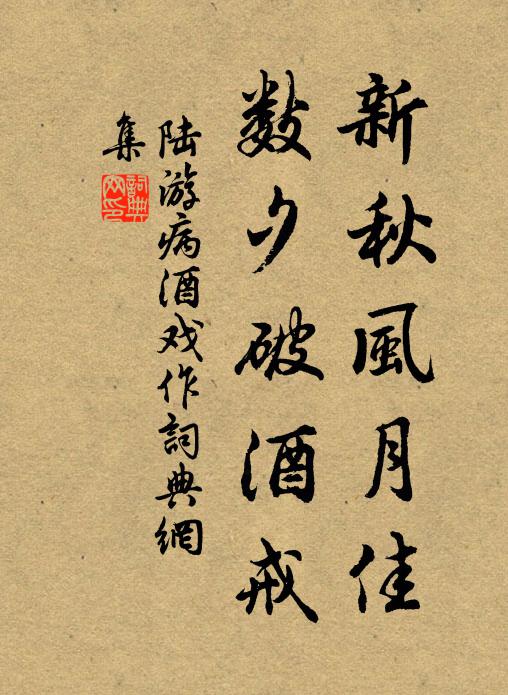 新秋風月佳
数夕破酒戒
陆游病酒戏作詞典網
集
詞典
网印